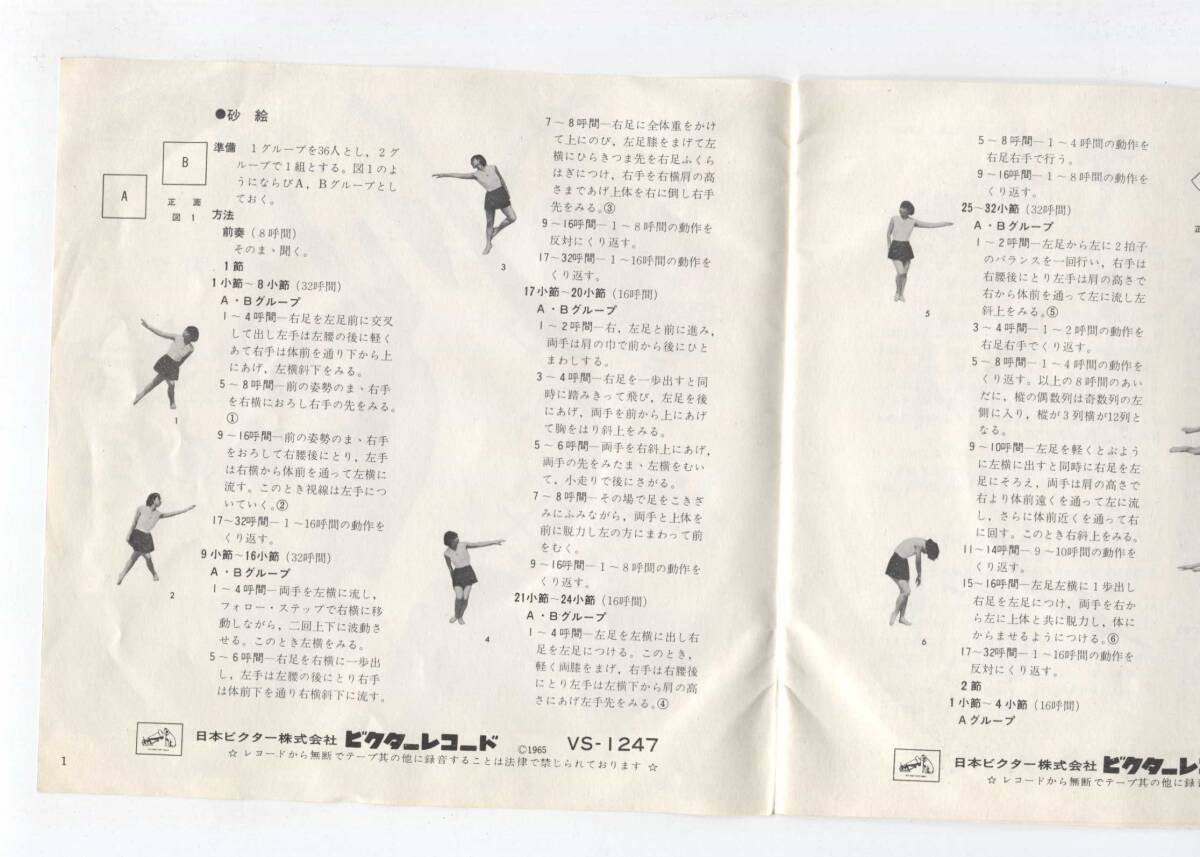 ●砂 絵
B
A
正 面
図 1
準備 1グループを36人とし，2グ
ループで1組とする。図1のよ
うにならびA，Bグループとし
ておく。
方法
前奏（8呼間）
そのまゝ聞く。
1節
1小節～8小節（32呼間）
A・Bグループ
1～4呼間―右足を左足前に交叉
して出し左手は左腰の後に軽く
あて右手は体前を通り下から上
にあげ，左横斜下をみる。
5～8呼間―前の姿勢のまゝ右手
を右横におろし右手の先をみる。
①
9～16呼間―前の姿勢のまゝ右手
をおろして右腰後にとり，左手
は右横から体前を通って左横に
流す。このとき視線は左手につ
いていく。②
17～32呼間―1～16呼間の動作を
くり返す。
9小節～16小節（32呼間）
A・Bグループ
1～4呼間―両手を左横に流し，
フォロー・ステップで右横に移
動しながら，二回上下に波動さ
せる。このとき左横をみる。
5～6呼間―右足を右横に一歩出
し，左手は左腰の後にとり右手
は体前下を通り右横斜下に流す。
1
2
7～8呼間―右足に全体重をかけ
て上にのび，左足膝をまげて左
横にひらきつま先を右足ふくら
はぎにつけ，右手を右横肩の高
さまであげ上体を右に倒し右手
先をみる。③
9～16呼間―1～8呼間の動作を
反対にくり返す。
17～32呼間―1～16呼間の動作を
くり返す。
17小節～20小節（16呼間）
A・Bグループ
1～2呼間―右，左足と前に進み，
両手は肩の巾で前から後にひと
まわしする。
3～4呼間―右足を一歩出すと同
時に踏みきって飛び，左足を後
にあげ，両手を前から上にあげ
て胸をはり斜上をみる。
5～6呼間―両手を右斜上にあげ，
両手の先をみたまゝ左横をむい
て，小走りで後にさがる。
7～8呼間―その場で足をこきざ
みにふみながら，両手と上体を
前に脱力し左の方にまわって前
をむく。
9～16呼間―1～8呼間の動作を
くり返す。
21小節～24小節（16呼間）
A・Bグループ
1～4呼間―左足を左横に出し右
足を左足につける。このとき，
軽く両膝をまげ，右手は右腰後
にとり左手は左横下から肩の高
さにあげ左手先をみる。④
3
4
日本ビクター株式会社 ビクターレコード ©1965 VS-1247
☆ レコードから無断でテープ其の他に録音することは法律で禁じられております ☆
1
5～8呼間―1～4呼間の動作を
右足右手で行う。
9～16呼間―1～8呼間の動作を
くり返す。
25～32小節（32呼間）
A・Bグループ
1～2呼間―左足から左に2拍子
のバランスを一回行い，右手は
右腰後にとり左手は肩の高さで
右から体前を通って左に流し左
斜上をみる。⑤
3～4呼間―1～2呼間の動作を
右足右手でくり返す。
5～8呼間―1～4呼間の動作を
くり返す。以上の8呼間のあい
だに，樅の偶数列は奇数列の左
側に入り，樅が3列横が12列と
なる。
9～10呼間―左足を軽くとぶよう
に左横に出すと同時に右足を左
足にそろえ，両手は肩の高さで
右より体前遠くを通って左に流
し，さらに体前近くを通って右
に回す。このとき右斜上をみる。
11～14呼間―9～10呼間の動作を
くり返す。
15～16呼間―左足左横に1歩出し
右足を左足につけ，両手を右か
ら左に上体と共に脱力し，体に
からませるようにつける。⑥
17～32呼間―1～16呼間の動作を
反対にくり返す。
2節
1小節～4小節（16呼間）
Aグループ
5
6
正
日本ビクター株式会社 ビクターレコ
☆ レコードから無断でテープ其の他に録音